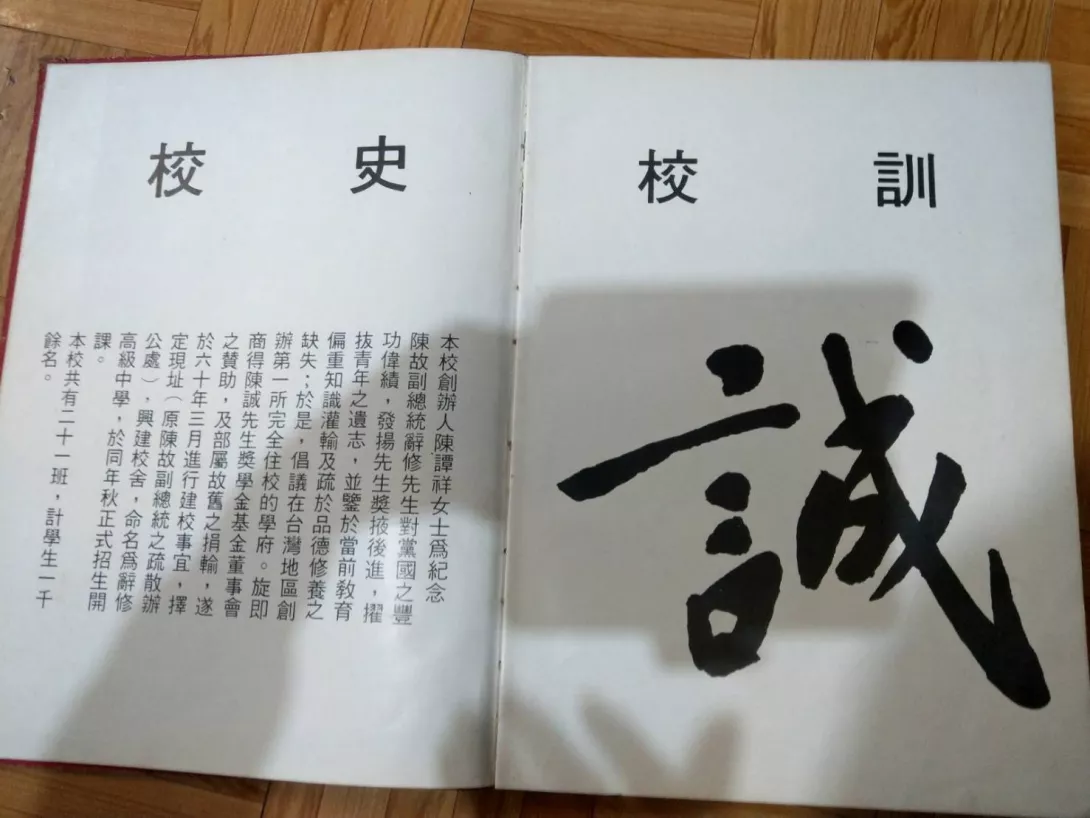 校史
本校創辦人陳譚祥女士爲紀念
陳故副總統辭修先生對黨國之豐
功偉績，發揚先生獎掖後進，擢
拔青年之遺志，並鑒於當前教育
偏重知識灌輸及疏於品德修養之
缺失；於是，倡議在台灣地區創
辦第一所完全住校的學府。旋即
商得陳誠先生獎學金基金董事會
之贊助，及部屬故舊之捐輸，遂
於六十年三月進行建校事宜，擇
定現址（原陳故副總統之疏散辦
公處），興建校舍，命名爲辭修
高級中學，於同年秋正式招生開
課。
本校共有二十一班，計學生一千
餘名。
校訓
誠